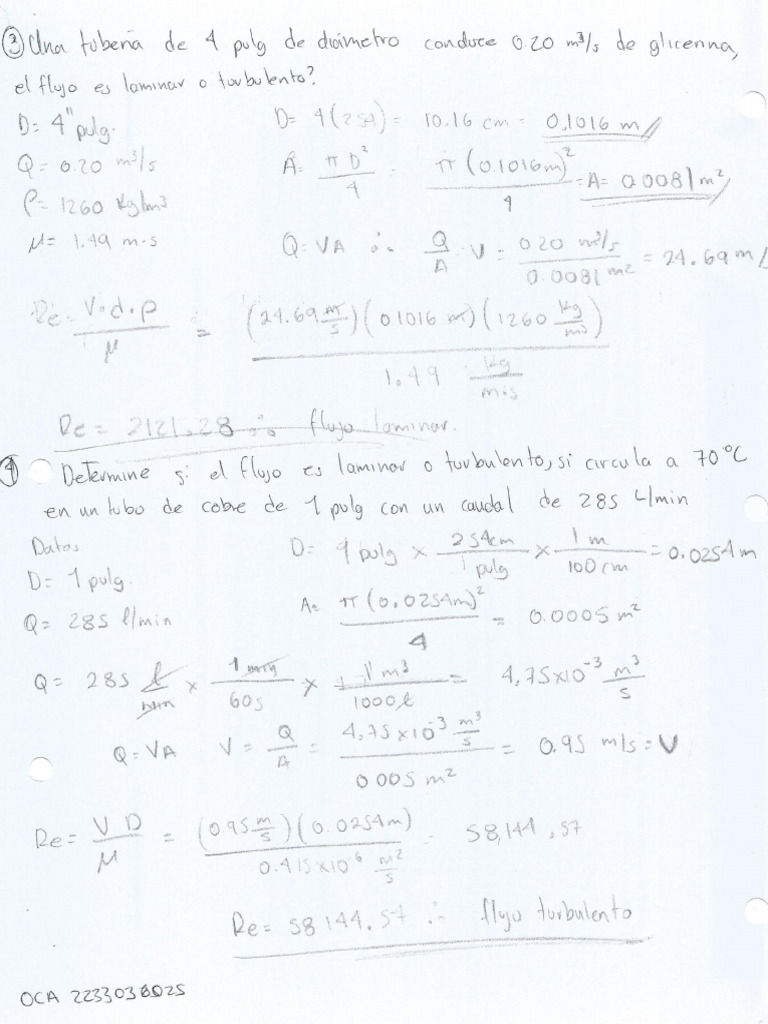 ③ Una tuberia de 4 pulg de diámetro conduce 0.20 m³/s de glicerina,
el flujo es laminar o turbulento?
D= 4" pulg.
D= 4(2.54) = 10.16 cm = 0.1016 m
Q= 0.20 m³/s
A= πD²/4 = π(0.1016m)²/4 = A= 0.0081 m²
ρ= 1260 Kg/m³
μ= 1.49 m·s
Q= VA ∴ Q/A = V = 0.20 m³/s / 0.0081 m² = 24.69 m/
Re = V·d·ρ/μ = (24.69 m/s)(0.1016 m)(1260 kg/m³) / 1.49 kg/m·s
Re = 2121.28 ∴ flujo laminar.
④ Determine si el flujo es laminar o turbulento, si circula a 70°C
en un tubo de cobre de 1 pulg con un caudal de 285 L/min
Datos
D= 1 pulg × 2.54cm/1 pulg × 1 m/100 cm = 0.0254 m
D= 1 pulg.
Q= 285 l/min
A= π(0.0254m)²/4 = 0.0005 m²
Q= 285 l/min × 1 min/60s × 1 m³/1000l = 4,75x10⁻³ m³/s
Q= VA V = Q/A = 4,75x10⁻³ m³/s / 0.005 m² = 0.95 m/s = V
Re= VD/μ = (0.95 m/s)(0.0254m) / 0.415x10⁻⁶ m²/s = 58,144.57
Re= 58144.57 ∴ flujo turbulento
OCA 2233036025